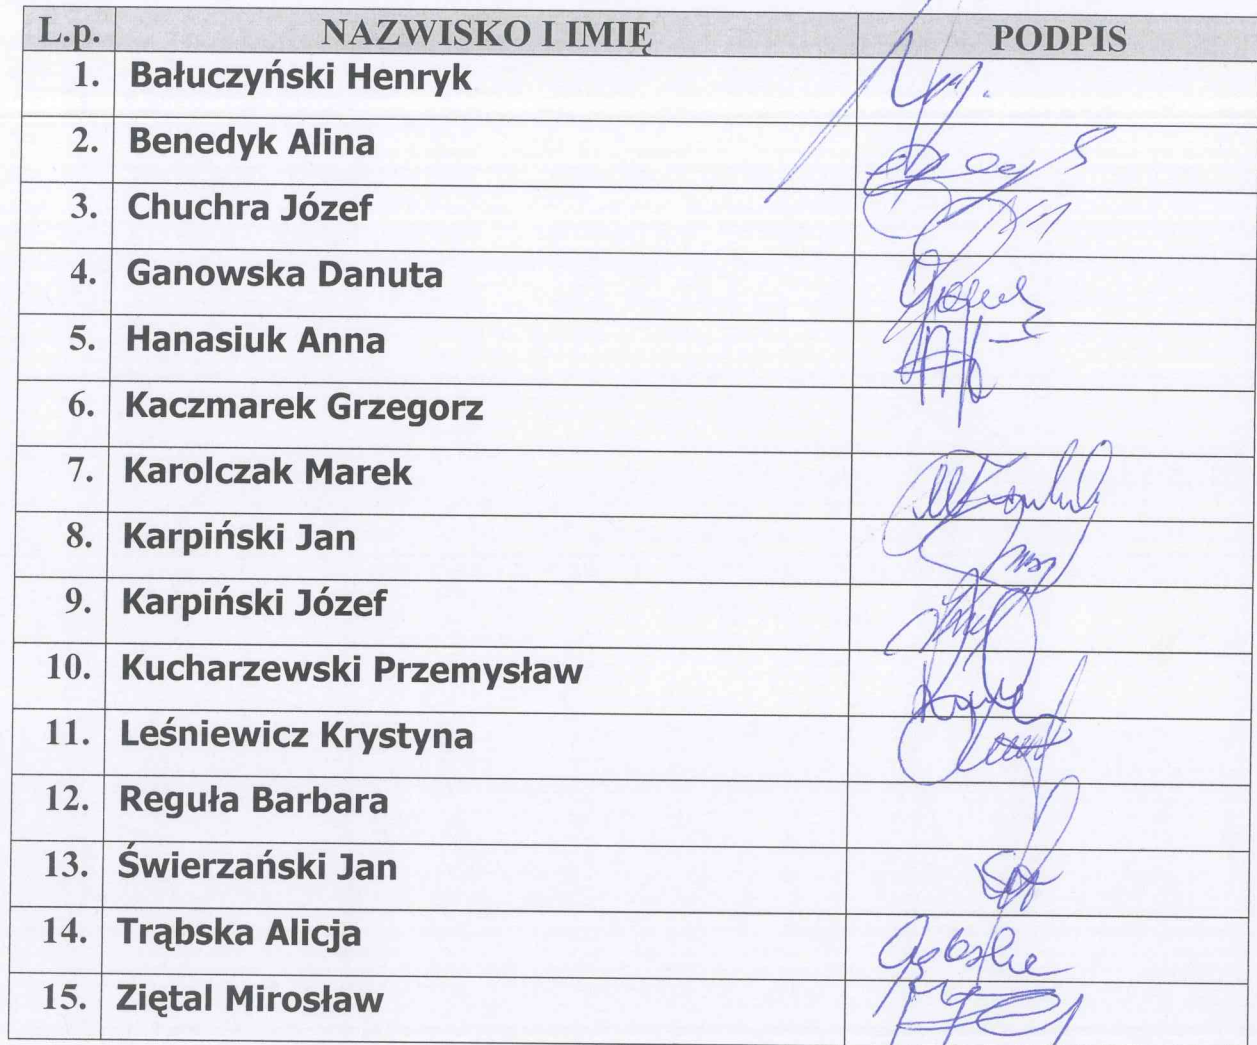 L.p. NAZWISKO I IMIĘ PODPIS
1. Bałuczyński Henryk
2. Benedyk Alina
3. Chuchra Józef
4. Ganowska Danuta
5. Hanasiuk Anna
6. Kaczmarek Grzegorz
7. Karolczak Marek
8. Karpiński Jan
9. Karpiński Józef
10. Kucharzewski Przemysław
11. Leśniewicz Krystyna
12. Reguła Barbara
13. Świerzański Jan
14. Trąbska Alicja
15. Ziętal Mirosław